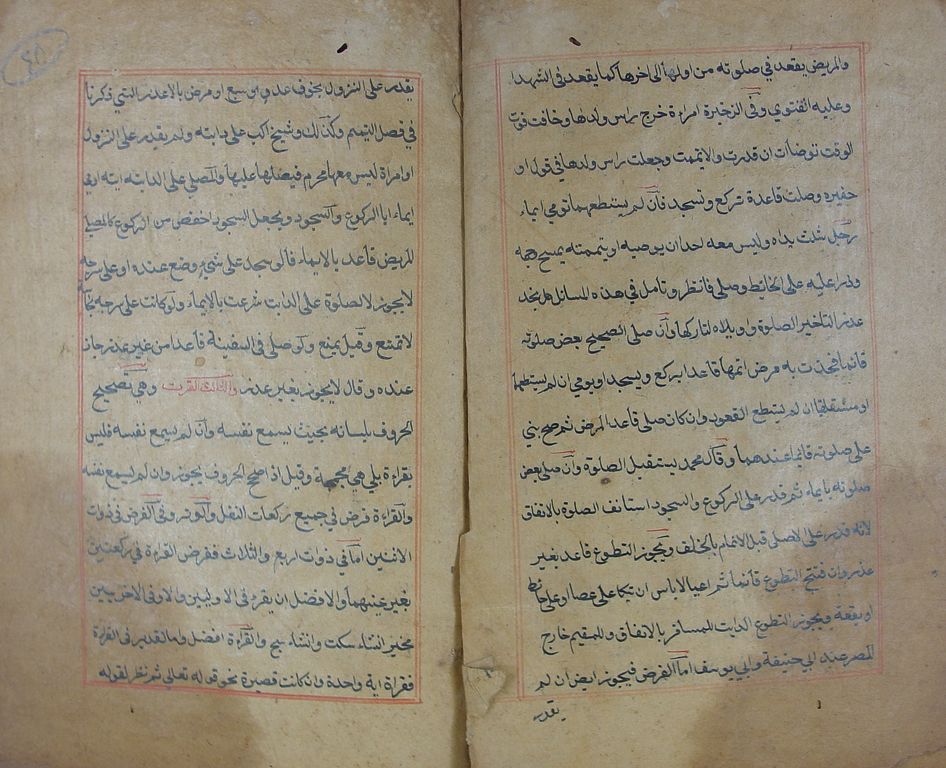 والمريض يقعد في صلوته من اولها الى اخرها كما يقعد في التشهد
وعليه الفتوي وفي الذخيرة امرءة خرج راس ولدها وخافت فوت
الوقت توضأت ان قدرت والا تيممت وجعلت راس ولدها في قدر او
حفيره وصلت قاعدة تركع وتسجد فان لم يستطعهما تومي ايماء
رجل شلت يداه وليس معه احد ان يوضيه او يتممه يمسح وجهه
وذراعيه على الحائط وصلى فانظر وتامل في هذه المسائل هل يجد
عذر التاخير الصلوة واويلاه لتاركها وان صلى الصحيح بعض صلوته
قائما فحدث به مرض اتمها قاعدا يركع ويسجد او يومي ان لم يستطعها
او مستقلقا ان لم يستطع القعود وان كان صلى قاعد المرض ثم صح بني
على صلوته قائما عندهما وقال محمد يستقبل الصلوة وان صلى بعض
صلوته بايماء ثم قدر على الركوع والسجود استانف الصلوة بالاتفاق
لانه قدر على الاصلى قبل الاتمام بالخلف ويجوز التطوع قاعد بغير
عذر وان فتتح التطوع قائما ثم اعيا لا باس ان يتكا على عصا وعلى حائط
او يقعد ويجوز التطوع الدابت للمسافر بالاتفاق وللمقيم خارج
المصر عند ابي حنيفة وابي يوسف اما الفرض فيجوز ايض ان لم
يقدر
يقدر على النزول بخوف عدو او سبع او مرض بالاعذر التي ذكرنا
في فصل التيمم وكذلك وشيخ اكب على دابته ولم يقدر على النزول
او امراة ليس معها محرم فيصلها عليها والمصلي على الدابته
ايماء ايا الركوع والسجود ويجعل السجود اخفض من الركوع كالمصلي
المريض قاعد بالايماء فالو سجد على شيء وضع عنده او على سرجه
لا يجوز لا الصلوة على الدابت شرعت بالايماء ولو كانت على سرجه نجاسة
لا تمنع وقيل يمنع ولو صلى في السفينة قاعدا من غير عذر جاز
عنده وقال لا يجوز بغير عذر والثالث القرت وهي تصحيح
الحروف بلسانه بحيث يسمع نفسه وان لم يسمع نفسه فليس
بقراءة بلي هي مجمجمة وقيل اذا صح الحروف يجوز وان لم يسمع نفسه
والقراءة فرض في جميع ركعات النفل والوتر وفي الفرض في ذوات
الاثنين اما في ذوات اربع والثلاث ففرض القراءة في ركعتين
بغير عينهما والافضل ان يقرء في الاوليين والا وفي الاخريين
مخير انشاء سكت وانشاء سبح والقراءة افضل واما القدير في القراءة
فقراة اية واحدة وان كانت قصيرة نحو قوله تعالى ثم نظر لقوله